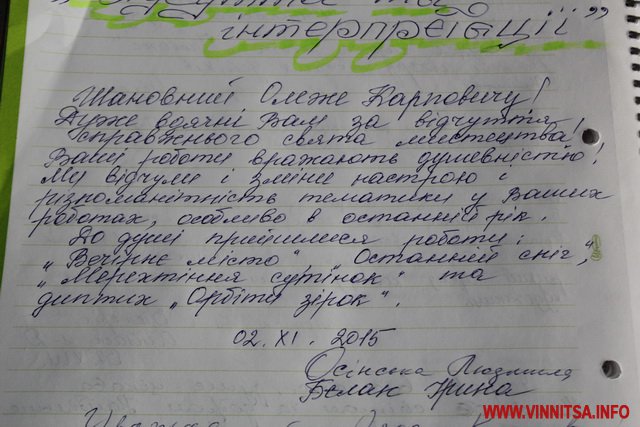 та
інтерпретації"
Шановний Олеже Карповичу!
Дуже вдячні Вам за відчуття
справжнього свята мистецтва!
Ваші роботи вражають душевністю!
Ми відчули і зміни настрою і
різноманітність тематики у Ваших
роботах, особливо в останній рік.
До душі прийшлися роботи:
„Вечірнє місто", „Останній сніг",
„Мерехтіння сутінок" та
диптих „Орбіти зірок".
02. XI. 2015
Осінська Людмила
Бєлак Ірина
WWW.VINNITSA.INFO